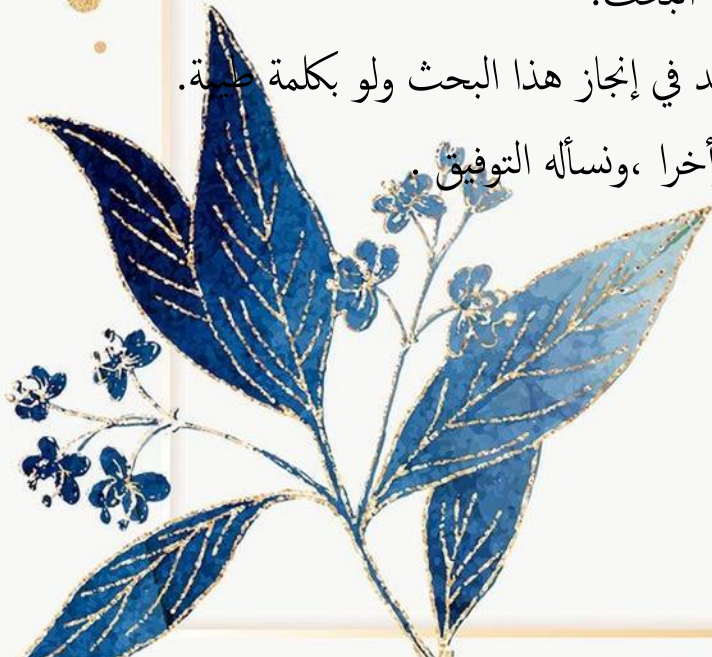 البحث.
في إنجاز هذا البحث ولو بكلمة طيبة.
أخرا ،ونسأله التوفيق .